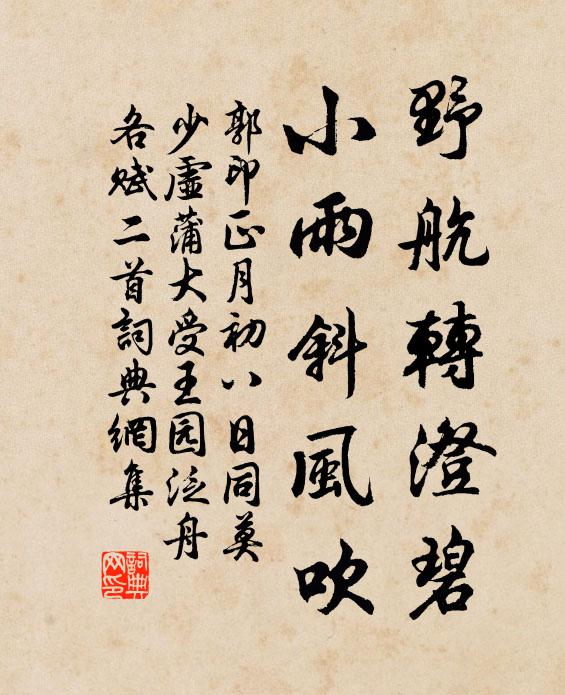 野航轉澄碧
小雨斜風吹
郭印正月初八日同莫
少虛蒲大受王园泛舟
各赋二首詞典網集
詞典网印